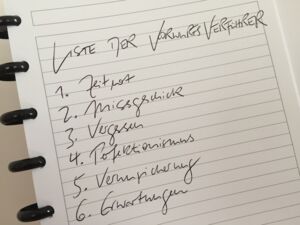 LISTE DER VORWURFSVERFÜHRER
1. Zeitnot
2. Missgeschick
3. Vergessen
4. Perfektionismus
5. Verunsicherung
6. Erwartungen